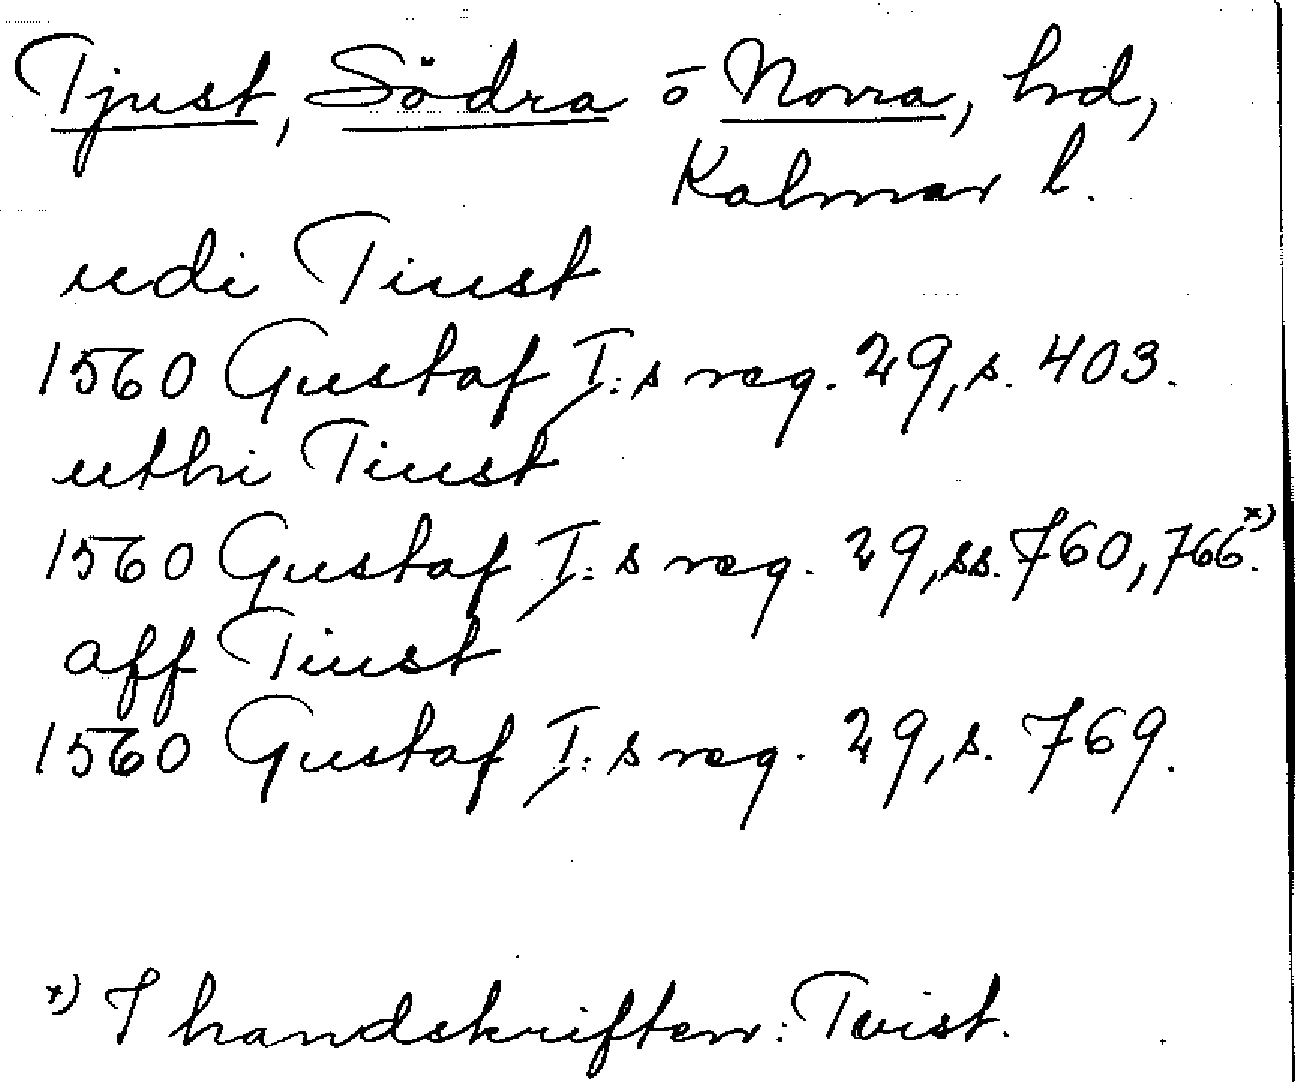 Tjust, Södra o Norra, hd,
Kalmar l.
udi Tiust
1560 Gustaf I:s reg. 29, s. 403.
uthi Tiust
1560 Gustaf I:s reg. 29, ss. 760, 766.x)
aff Tiust
1560 Gustaf I:s reg. 29, s. 769.
x) I handskriften: Tvist.